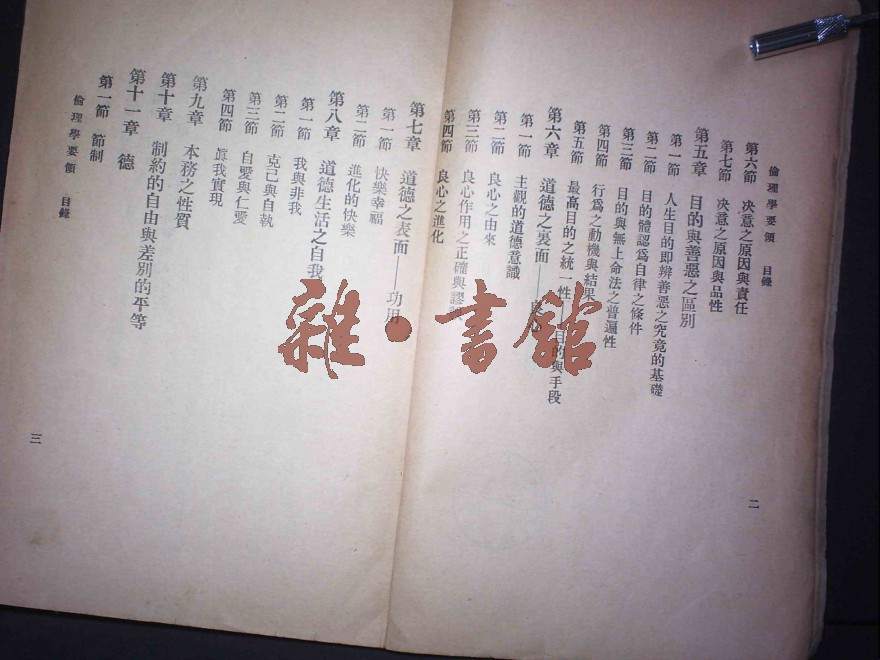 倫理學要領 目錄
第六節 決意之原因與責任
第七節 決意之原因與品性
第五章 目的與善惡之區別
第一節 人生目的即辨善惡之究竟的基礎
第二節 目的體認爲自律之條件
第三節 目的與無上命法之普遍性
第四節 行爲之動機與結果
第五節 最高目的之統一性——目的與手段
第六章 道德之裏面——良心
第一節 主觀的道德意識
第二節 良心之由來
第三節 良心作用之正確與謬誤
第四節 良心之進化
二
第七章 道德之表面——功用
第一節 快樂幸福
第二節 進化的快樂
第八章 道德生活之自我
第一節 我與非我
第二節 克己與自執
第三節 自愛與仁愛
第四節 眞我實現
第九章 本務之性質
第十章 制約的自由與差別的平等
第十一章 德
第一節 節制
倫理學要領 目錄
三
雜·書館